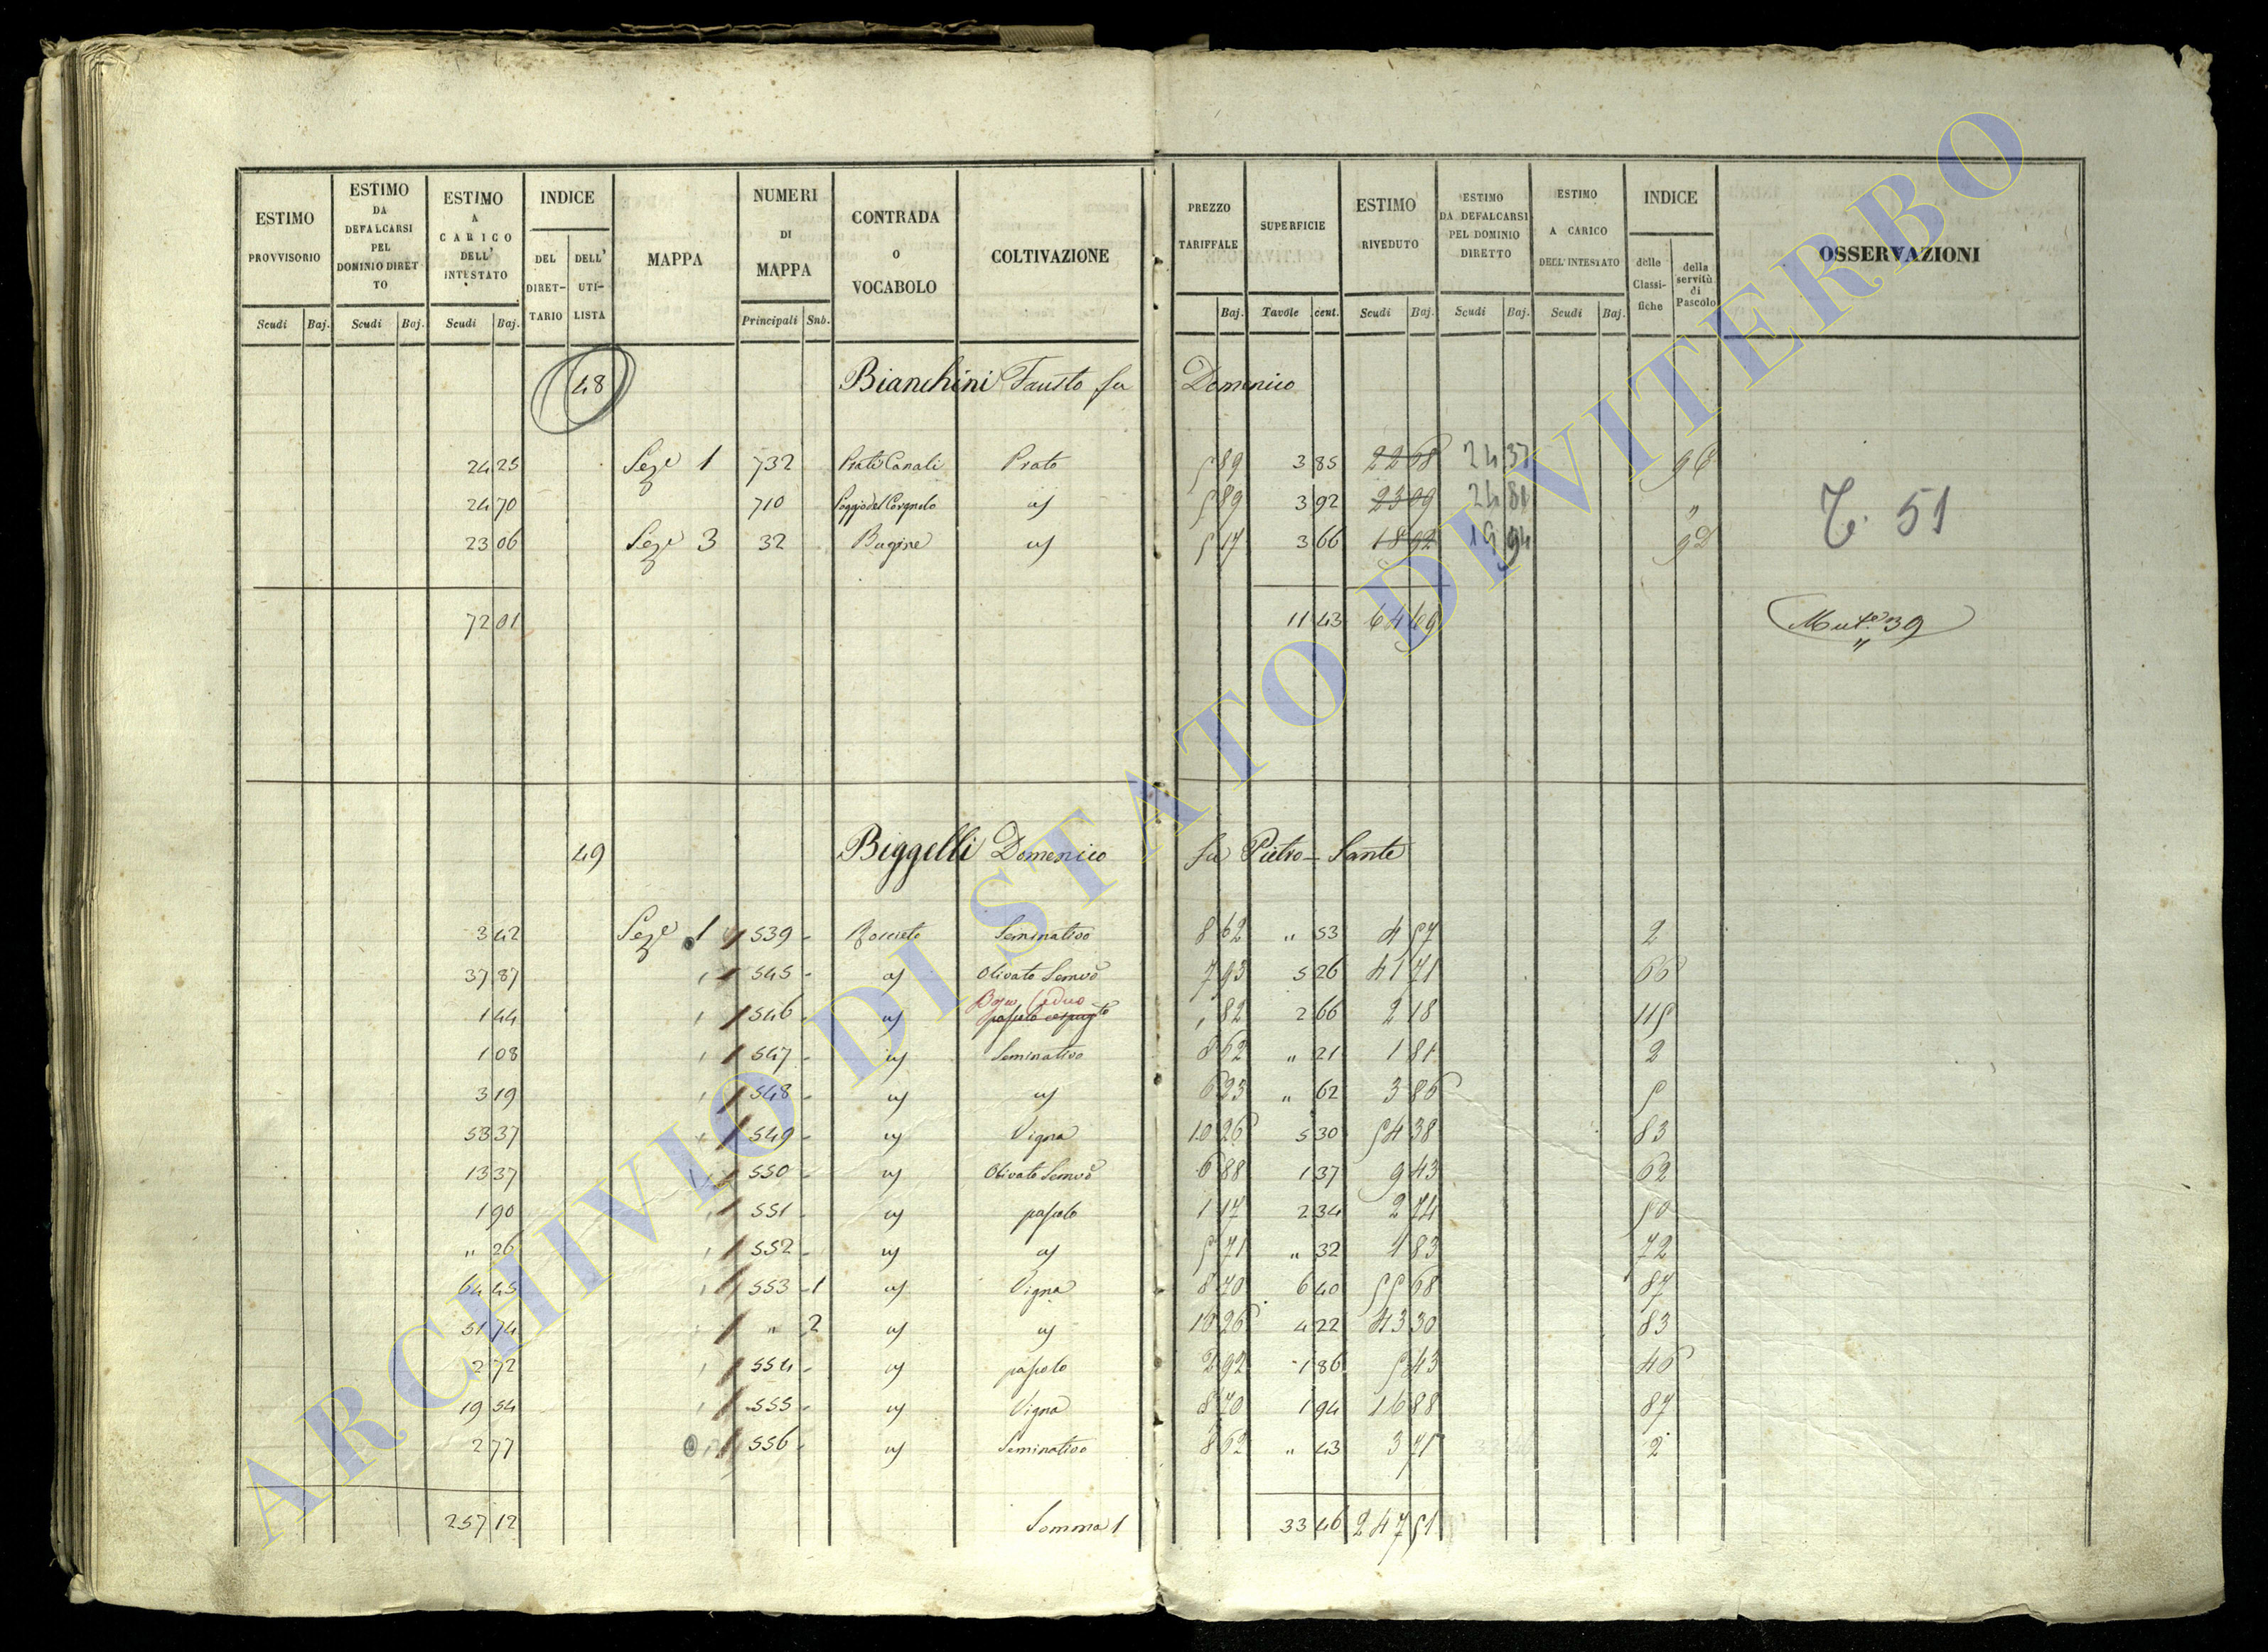 ESTIMO PROVVISORIO
ESTIMO DA DEFALCARSI PEL DOMINIO DIRETTO
ESTIMO A CARICO DELL' INTESTATO
INDICE
DEL DIRET-TARIO
DELL' UTI-LISTA
MAPPA
NUMERI DI MAPPA
CONTRADA O VOCABOLO
COLTIVAZIONE
PREZZO TARIFFALE
SUPERFICIE
ESTIMO RIVEDUTO
ESTIMO DA DEFALCARSI PEL DOMINIO DIRETTO
ESTIMO A CARICO DELL'INTESTATO
INDICE
delle Classi-fiche
della servitù di Pascolo
OSSERVAZIONI
Scudi Baj. Scudi Baj. Scudi Baj. Principali Sub. Baj. Tavole cent. Scudi Baj. Scudi Baj. Scudi Baj.
48 Bianchini Fausto fu Domenico
24 25 Seze 1 732 Prati Canali Prato 5 89 3 85 22 68 24 37 96
24 70 710 Poggio del Corgnolo 5 89 3 92 23 09 24 81 "
23 06 Seze 3 32 Bagine 5 17 3 66 18 92 19 94 92
T. 51
72 01 11 43 64 69 Mut. 39
49 Biggelli Domenico fu Pietro-Sante
3 42 Seze 1 539 Seminativo 8 62 " 53 4 57 2
37 87 545 Olivato Semvo 7 93 5 26 41 71 66
1 44 546 Bosco Ceduo pascolo cespugto 82 2 66 2 18 115
1 08 547 Seminativo 8 62 " 21 1 81 2
3 19 548 6 23 " 62 3 86 5
53 37 549 Vigna 10 26 5 30 54 38 83
13 37 550 Olivato Semvo 6 88 1 37 9 43 62
1 90 551 pascolo 1 17 2 34 2 74 50
" 26 552 5 71 " 32 1 83 72
64 45 553 1 Vigna 8 70 6 40 55 68 87
51 74 " 2 10 26 4 22 43 30 83
2 72 554 pascolo 2 92 1 86 5 43 46
19 54 555 Vigna 8 70 1 94 16 88 87
2 77 556 Seminativo 8 62 " 43 3 71 2
257 12 Somma 1 33 46 247 51
ARCHIVIO DI STATO DI VITERBO